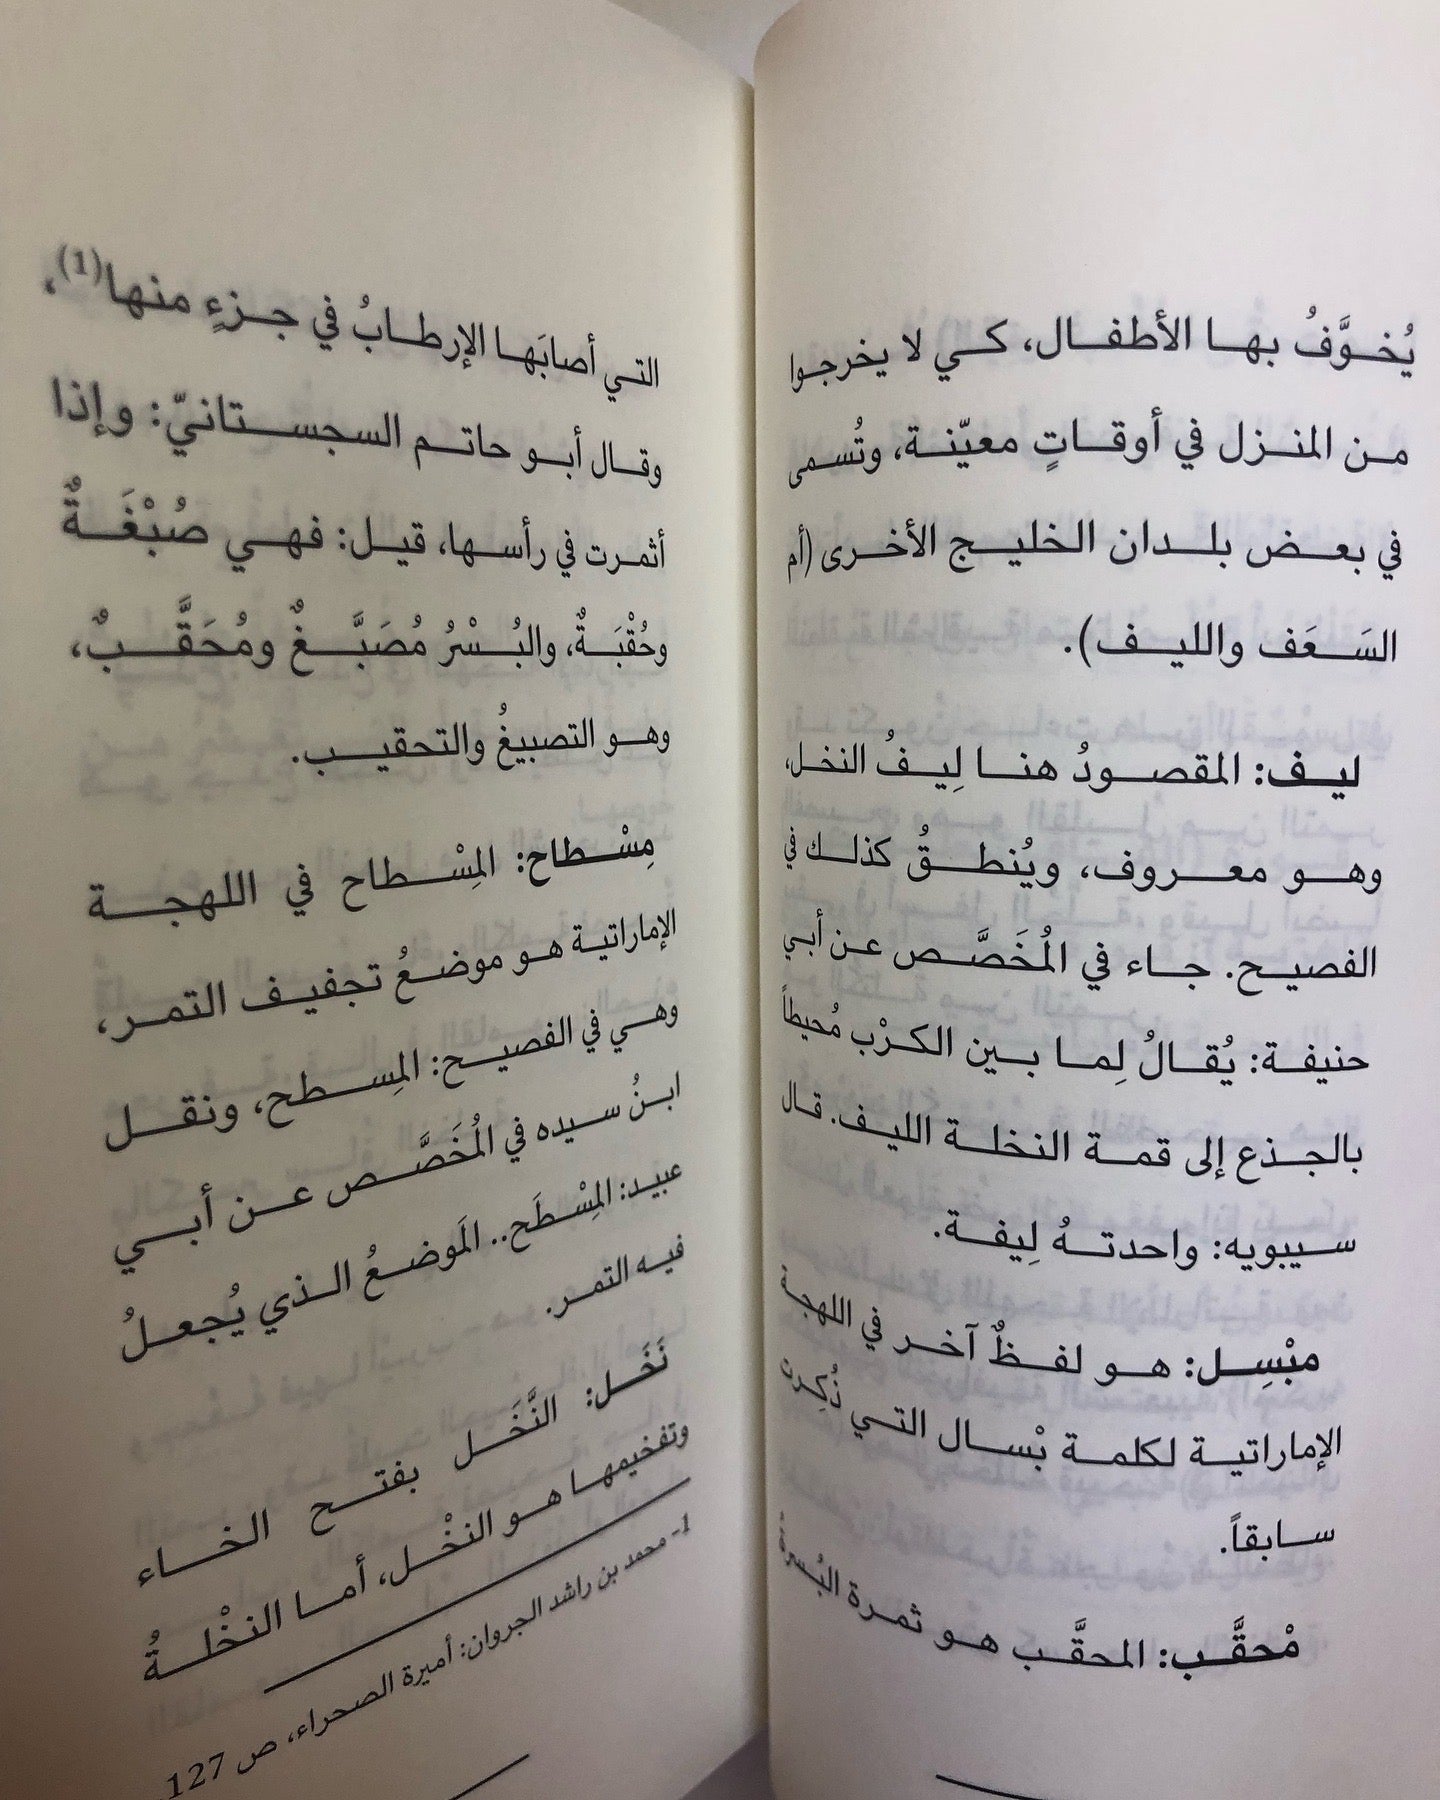 يُخوَّفُ بها الأطفال، كي لا يخرجوا
من المنزل في أوقاتٍ معيّنة، وتُسمى
في بعض بلدان الخليج الأخرى (أم
السَعَف والليف).
ليف: المقصودُ هنا لِيفُ النخل،
وهو معروف، ويُنطقُ كذلك في
الفصيح. جاء في المُخَصَّص عن أبي
حنيفة: يُقالُ لِما بين الكرْب مُحيطاً
بالجذع إلى قمة النخلة الليف. قال
سيبويه: واحدتهُ لِيفة.
مبْسِل: هو لفظٌ آخر في اللهجة
الإماراتية لكلمة بْسال التي ذُكِرت
سابقاً.
مْحقَّب: المحقَّب هو ثمرة البُسرة
التي أصابَها الإرطابُ في جزءٍ منها(1)،
وقال أبو حاتم السجستانيّ: وإذا
أثمرت في رأسها، قيل: فهي صُبْغَةٌ
وحُقْبَةٌ، والبُسْرُ مُصَبَّغٌ ومُحَقَّبٌ،
وهو التصبيغُ والتحقيب.
مِسْطاح: المِسْطاح في اللهجة
الإماراتية هو موضعُ تجفيف التمر،
وهي في الفصيح: المِسطح، ونقل
ابنُ سيده في المُخَصَّص عن أبي
عبيد: المِسْطَح.. الَموضعُ الذي يُجعلُ
فيه التمر.
نَخَل: النَّخَل بفتح الخاء
وتفخيمها هو النخْل، أما النخْلةُ
1- محمد بن راشد الجروان: أميرة الصحراء، ص 127